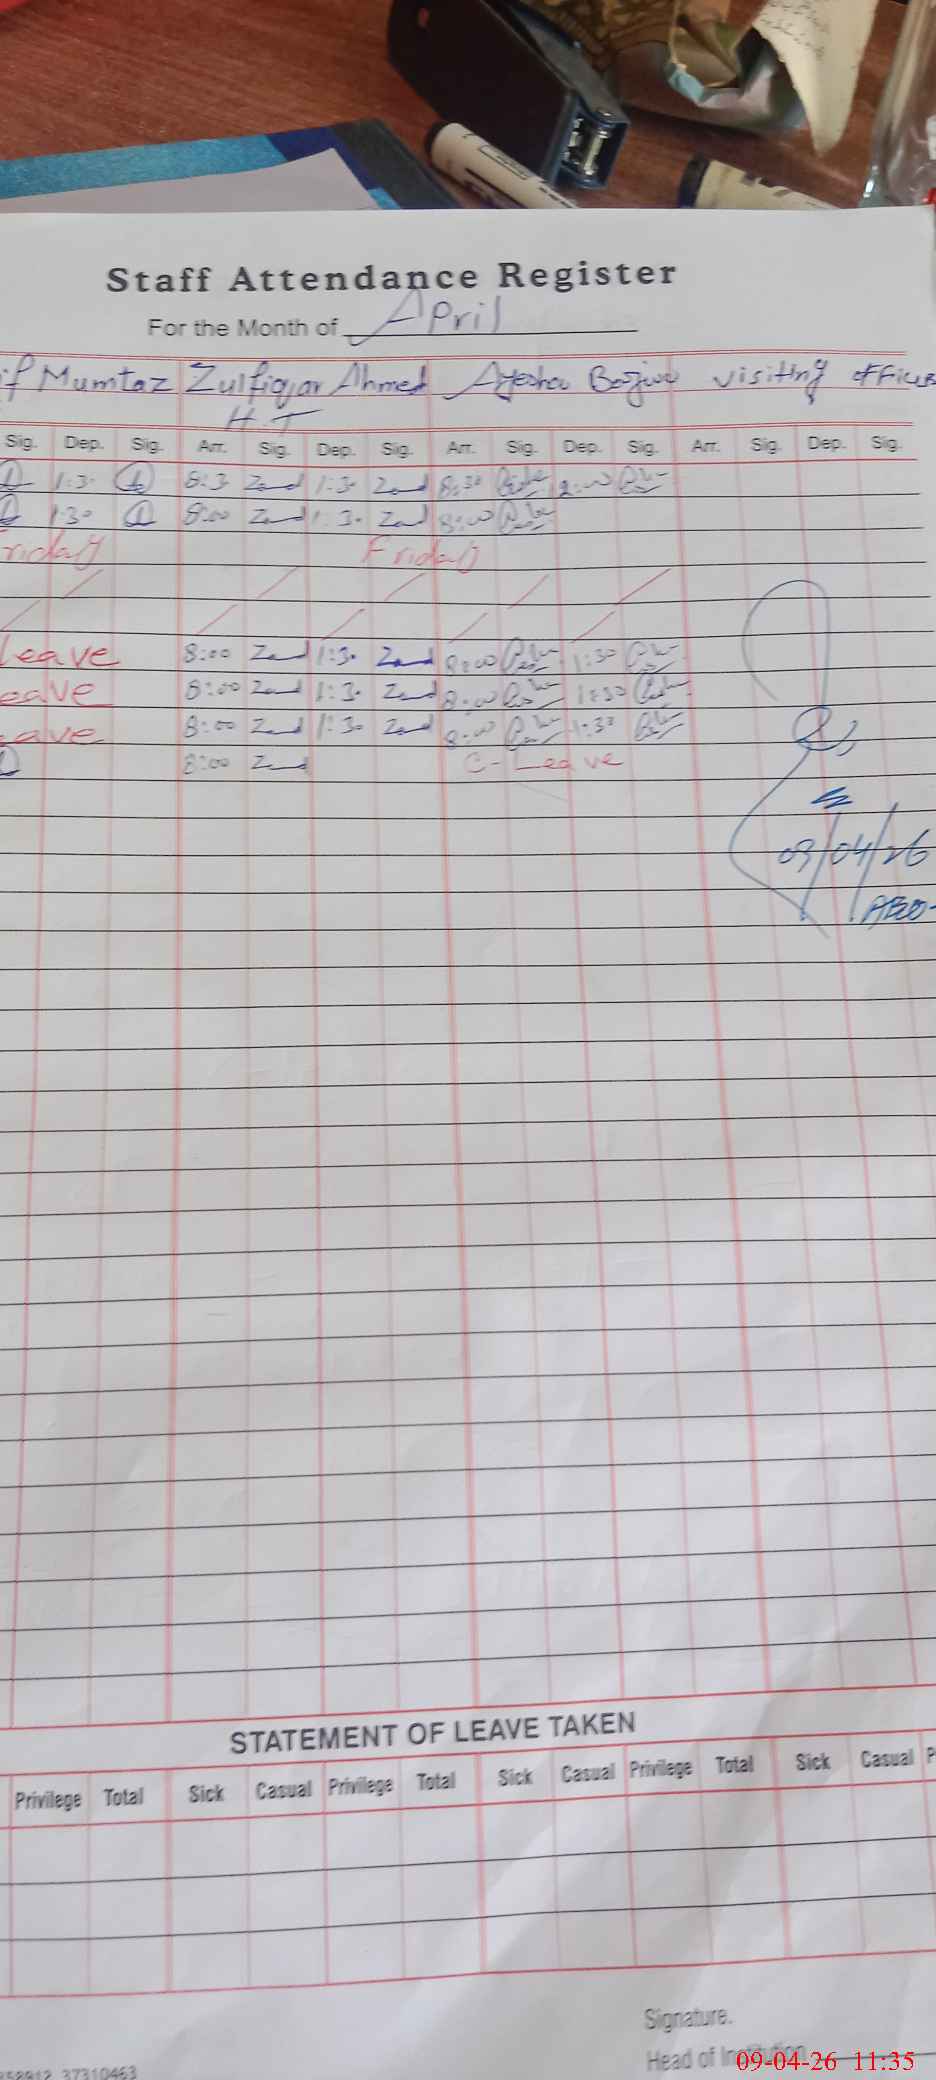 Staff Attendance Register
For the Month of April
if Mumtaz Zulfiqar Ahmed Ayesha visiting officer
H.T
Sig. Dep. Sig. Arr. Sig. Dep. Sig. Arr. Sig. Dep. Sig. Arr. Sig. Dep. Sig.
1:3. 8:3 1:3. 8:30
1:30 8:00 1:3. 8:00
Friday Friday
Leave 8:00 1:3. 8:00 1:30
eave 8:00 1:3. 8:00 1:30
eave 8:00 1:30 8:00 1:30
8:00 C-Leave
09/04/26
STATEMENT OF LEAVE TAKEN
Privilege Total Sick Casual Privilege Total Sick Casual Privilege Total Sick Casual P
Signature.
Head of Institution
37310463
09-04-26 11:35